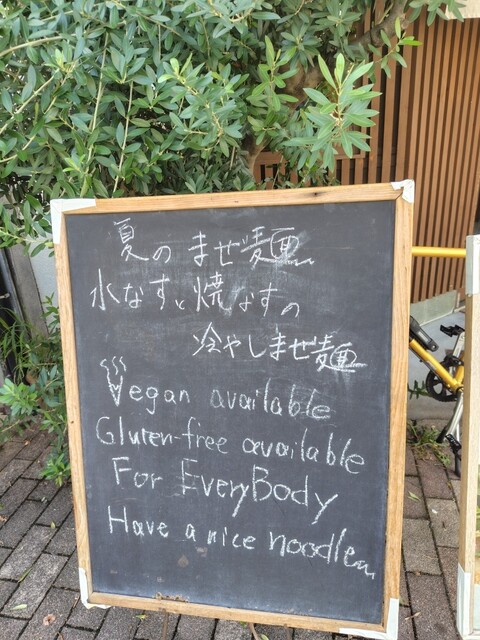 夏の まぜ麺
水なすと焼なすの
冷やしまぜ麺
Vegan available
Gluten-free available
For EveryBody
Have a nice noodle